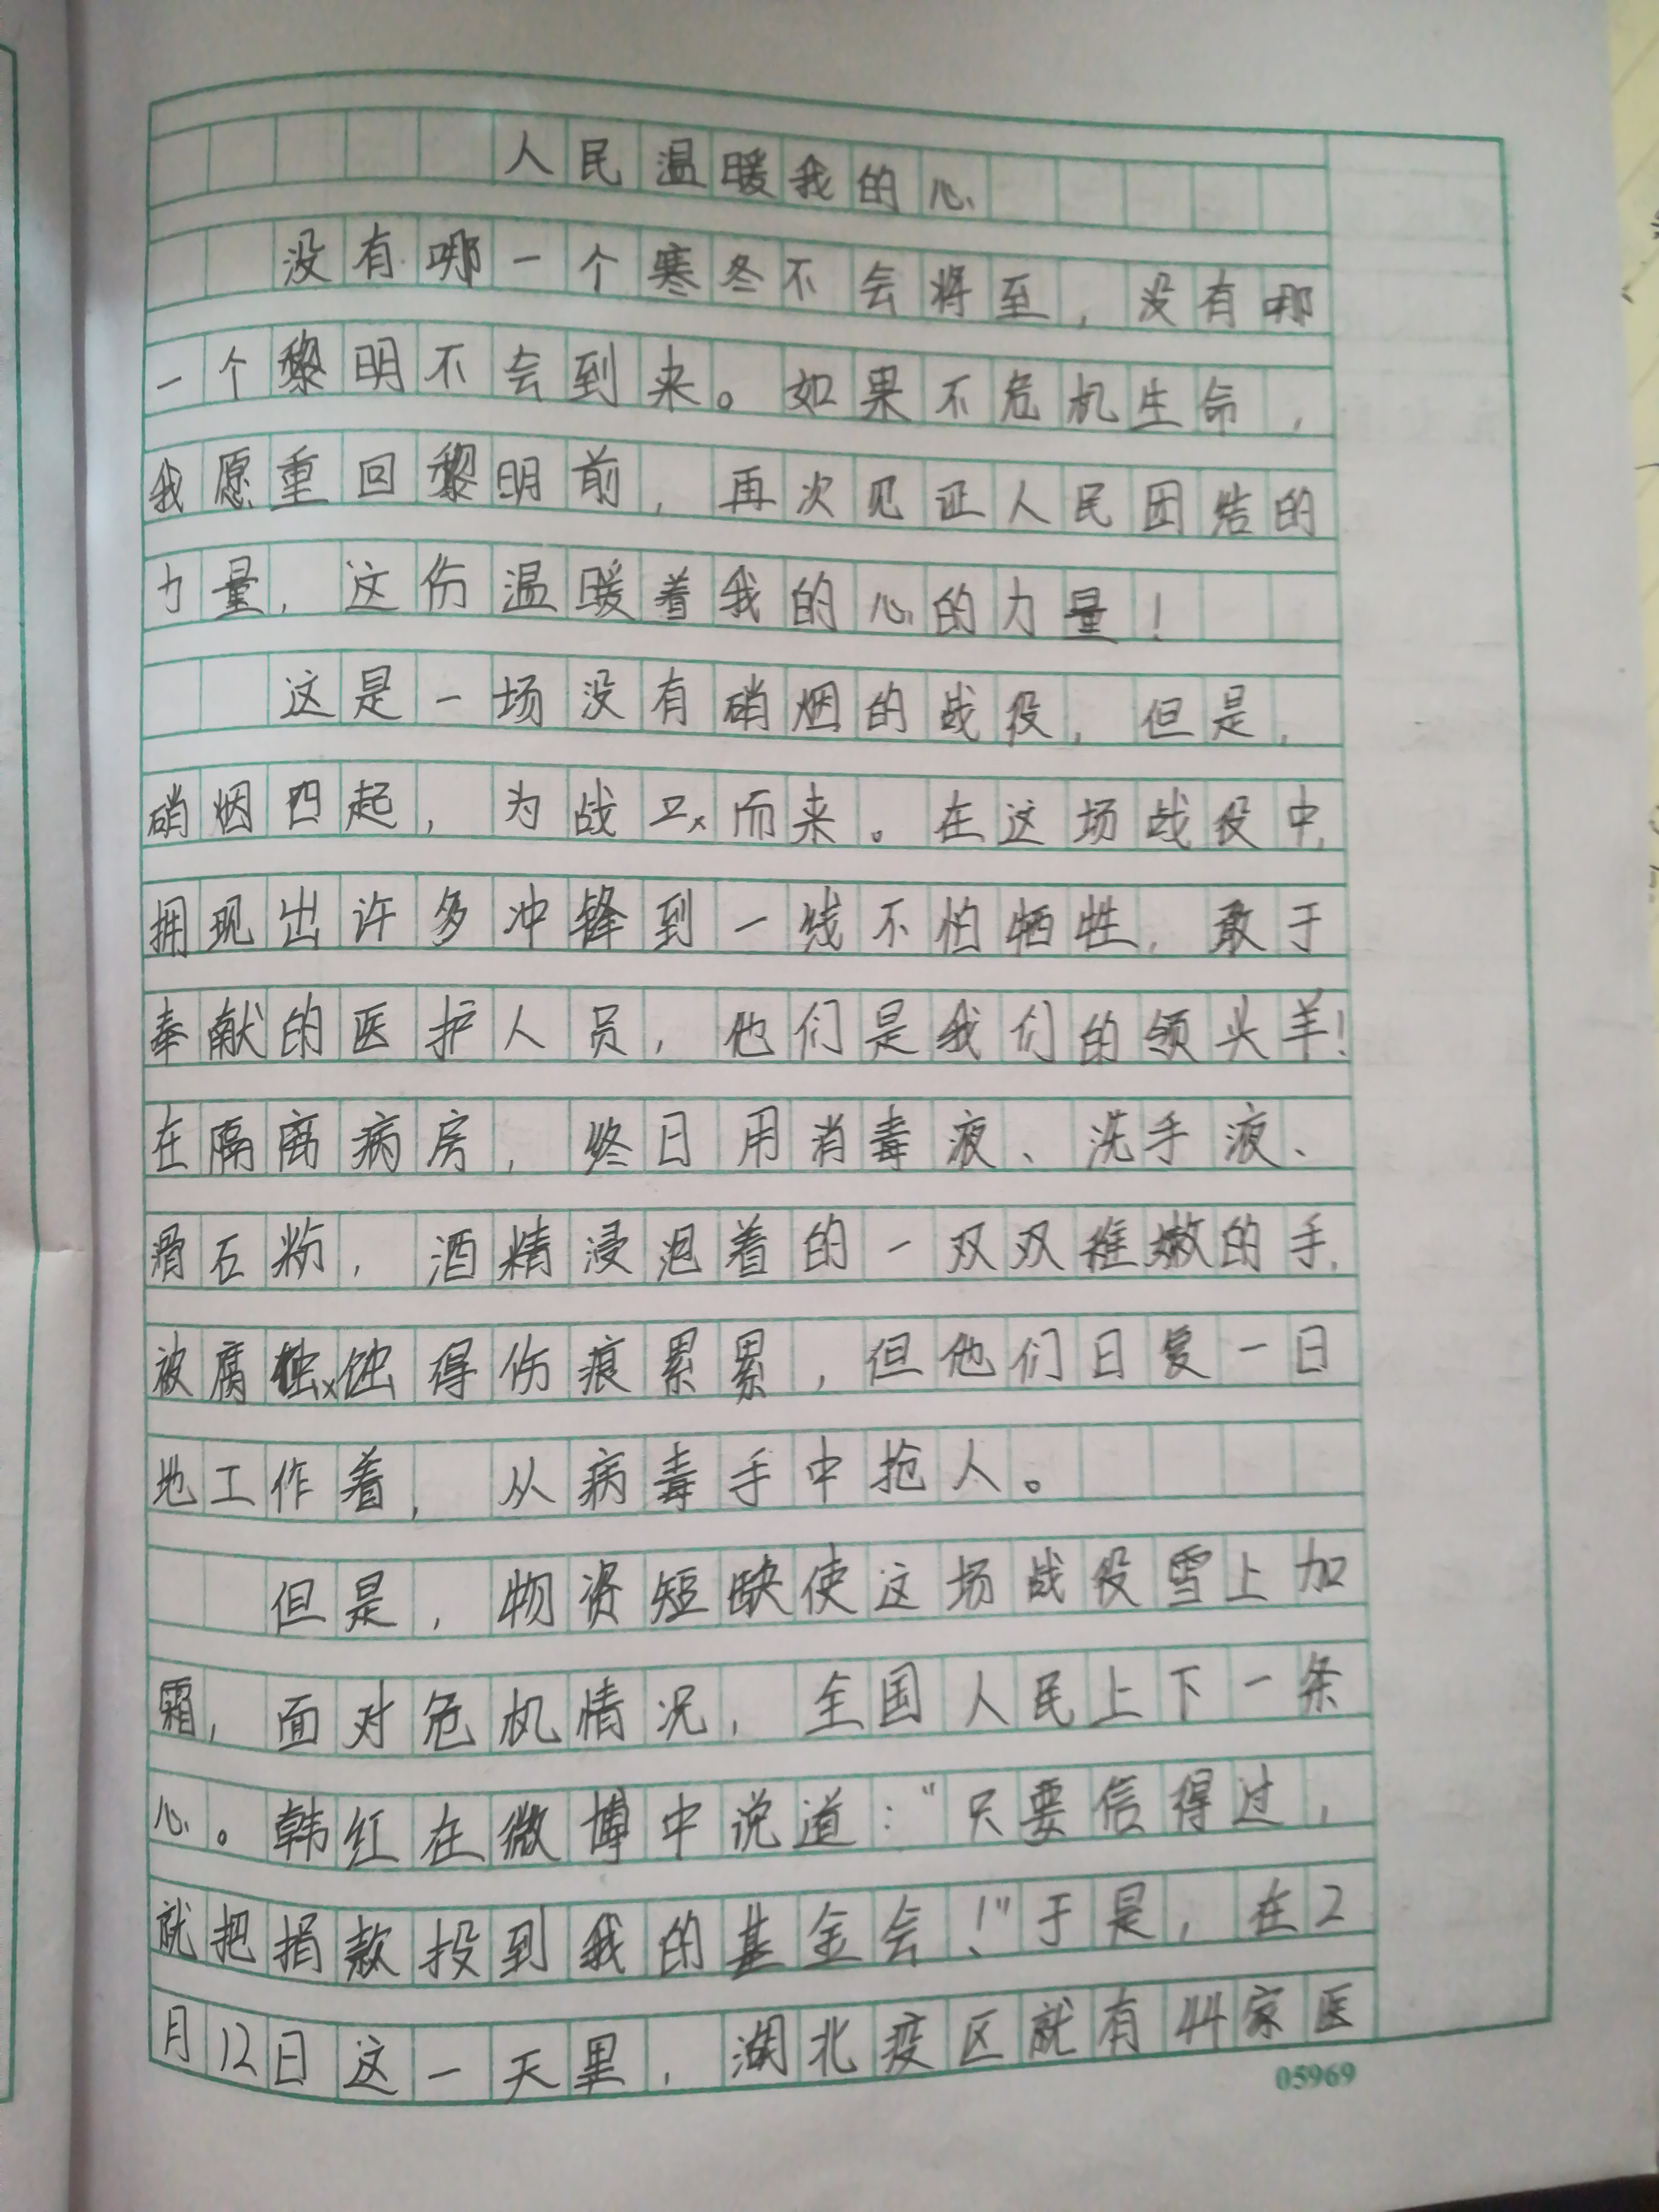 人民温暖我的心
没有哪一个寒冬不会将至，没有哪
一个黎明不会到来。如果不危机生命，
我愿重回黎明前，再次见证人民团结的
力量，这份温暖着我的心的力量！
这是一场没有硝烟的战役，但是，
硝烟四起，为战而来。在这场战役中，
拥现出许多冲锋到一线不怕牺牲，敢于
奉献的医护人员，他们是我们的领头羊！
在隔离病房，终日用消毒液、洗手液、
滑石粉，酒精浸泡着的一双双稚嫩的手，
被腐蚀得伤痕累累，但他们日复一日
地工作着，从病毒手中抢人。
但是，物资短缺使这场战役雪上加
霜，面对危机情况，全国人民上下一条
心。韩红在微博中说道：“只要信得过，
就把捐款投到我的基金会！”于是，在2
月12日这一天里，湖北疫区就有44家医
05969